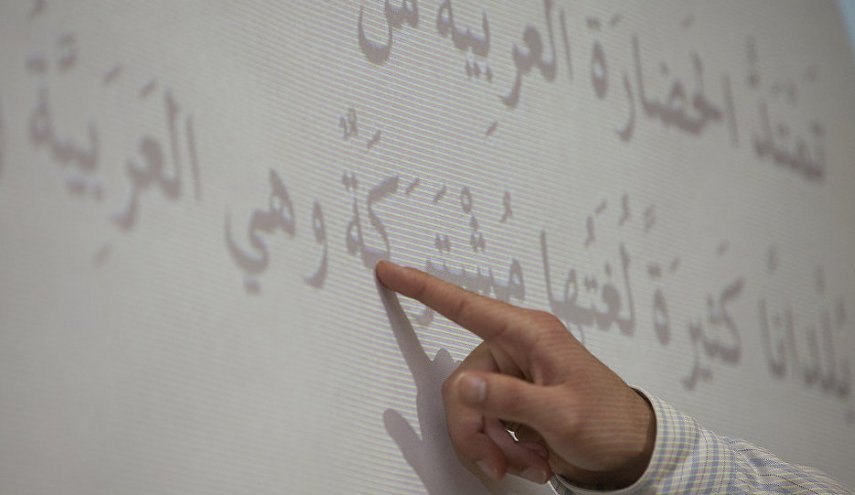 تَمْتَدُّ الحَضارَة العَرَبِيَّة مِن
بُلْداناً كَثيرَةً لُغَتُها مُشْتَرَكَةٌ وهي العَرَبيَّةُ